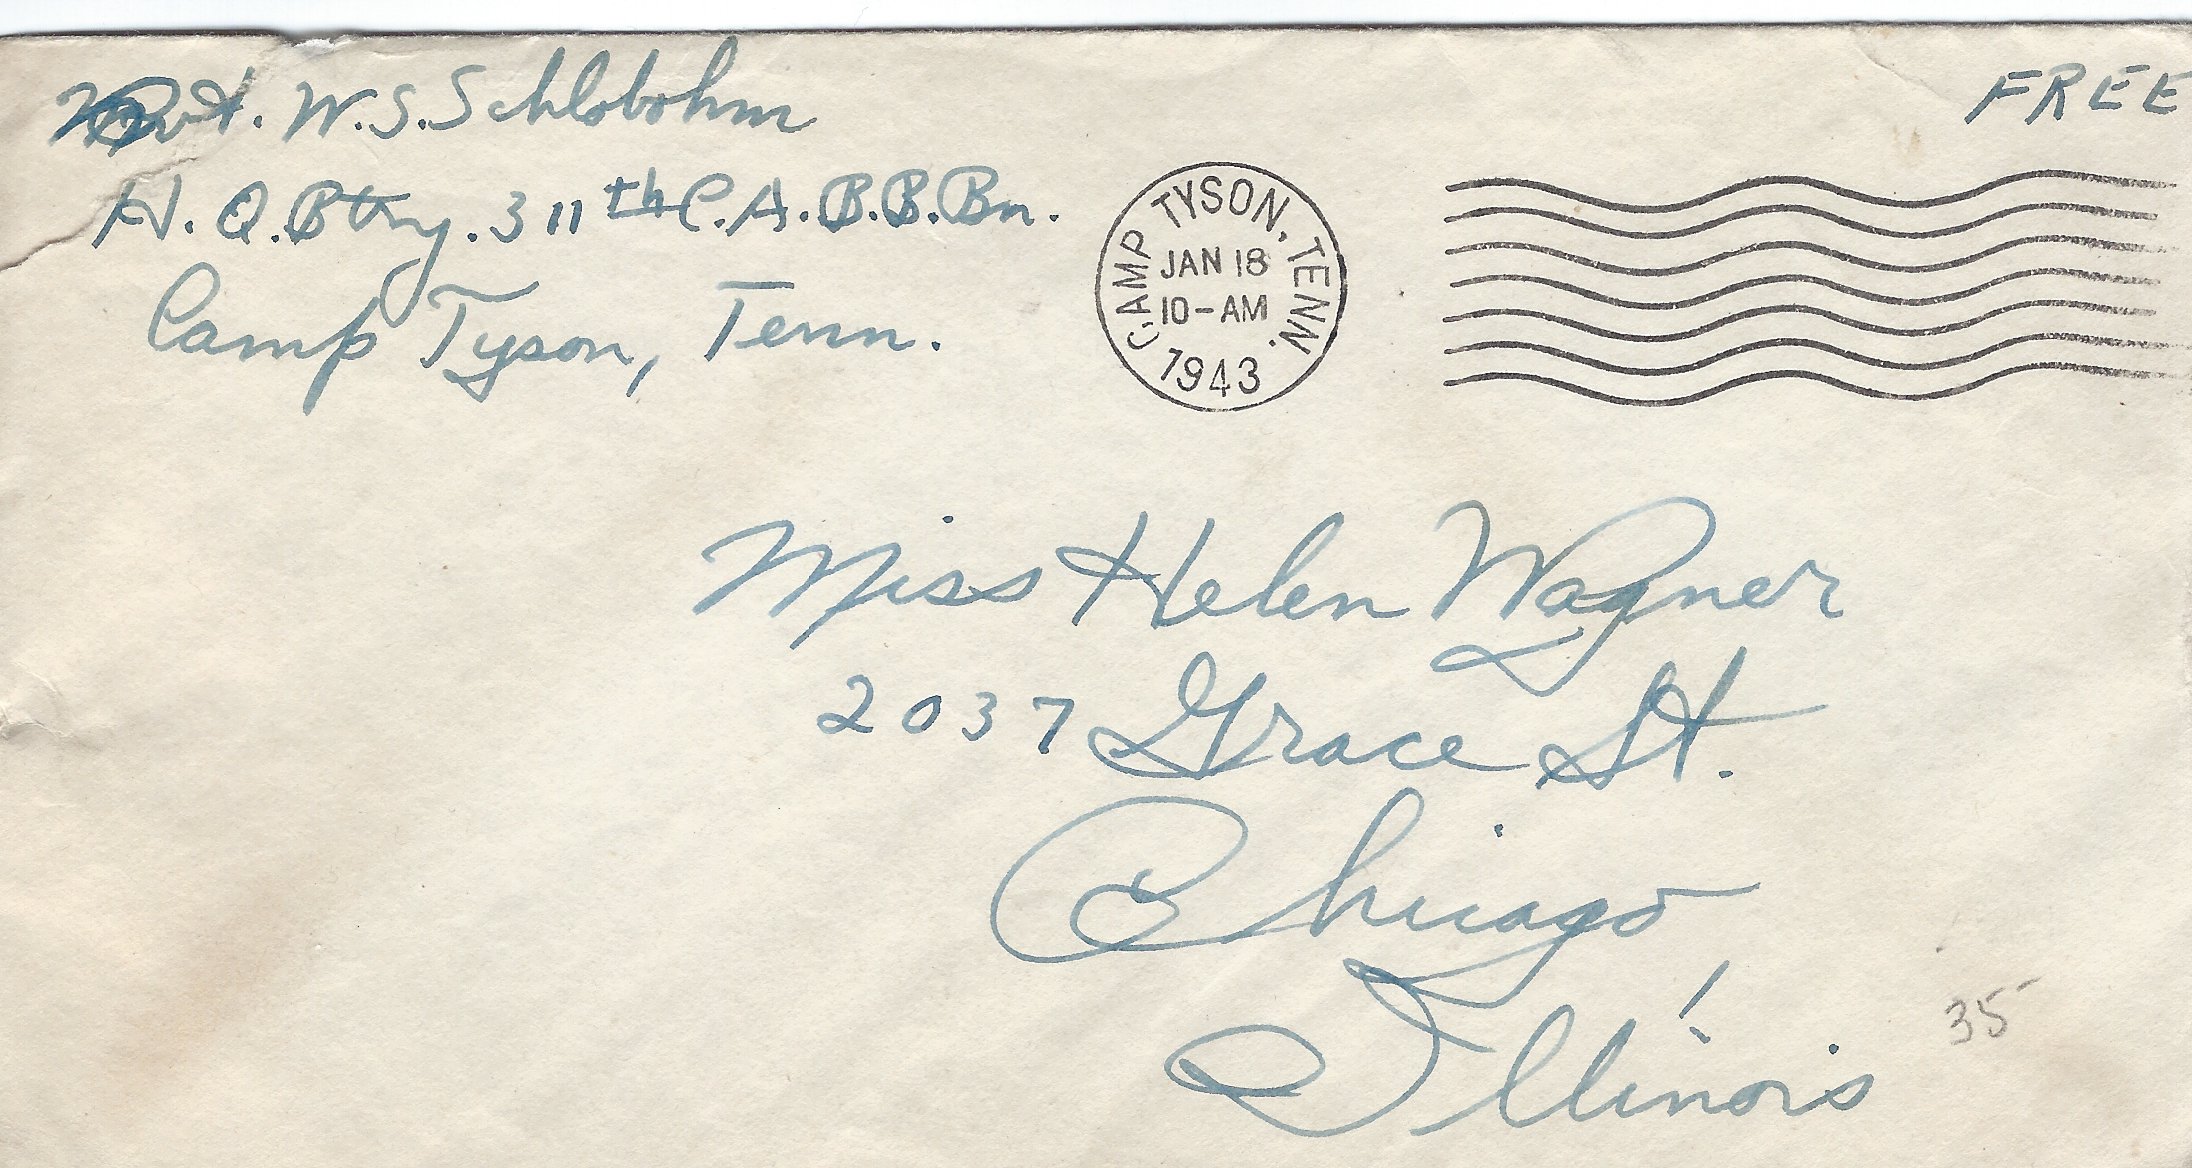 Pvt. W.S. Schlobohm
H.Q. Btry. 311th C.A.B.B.Bn.
Camp Tyson, Tenn.
FREE
CAMP TYSON, TENN.
JAN 18
10-AM
1943
Miss Helen Wagner
2037 Grace St.
Chicago
Illinois
35-